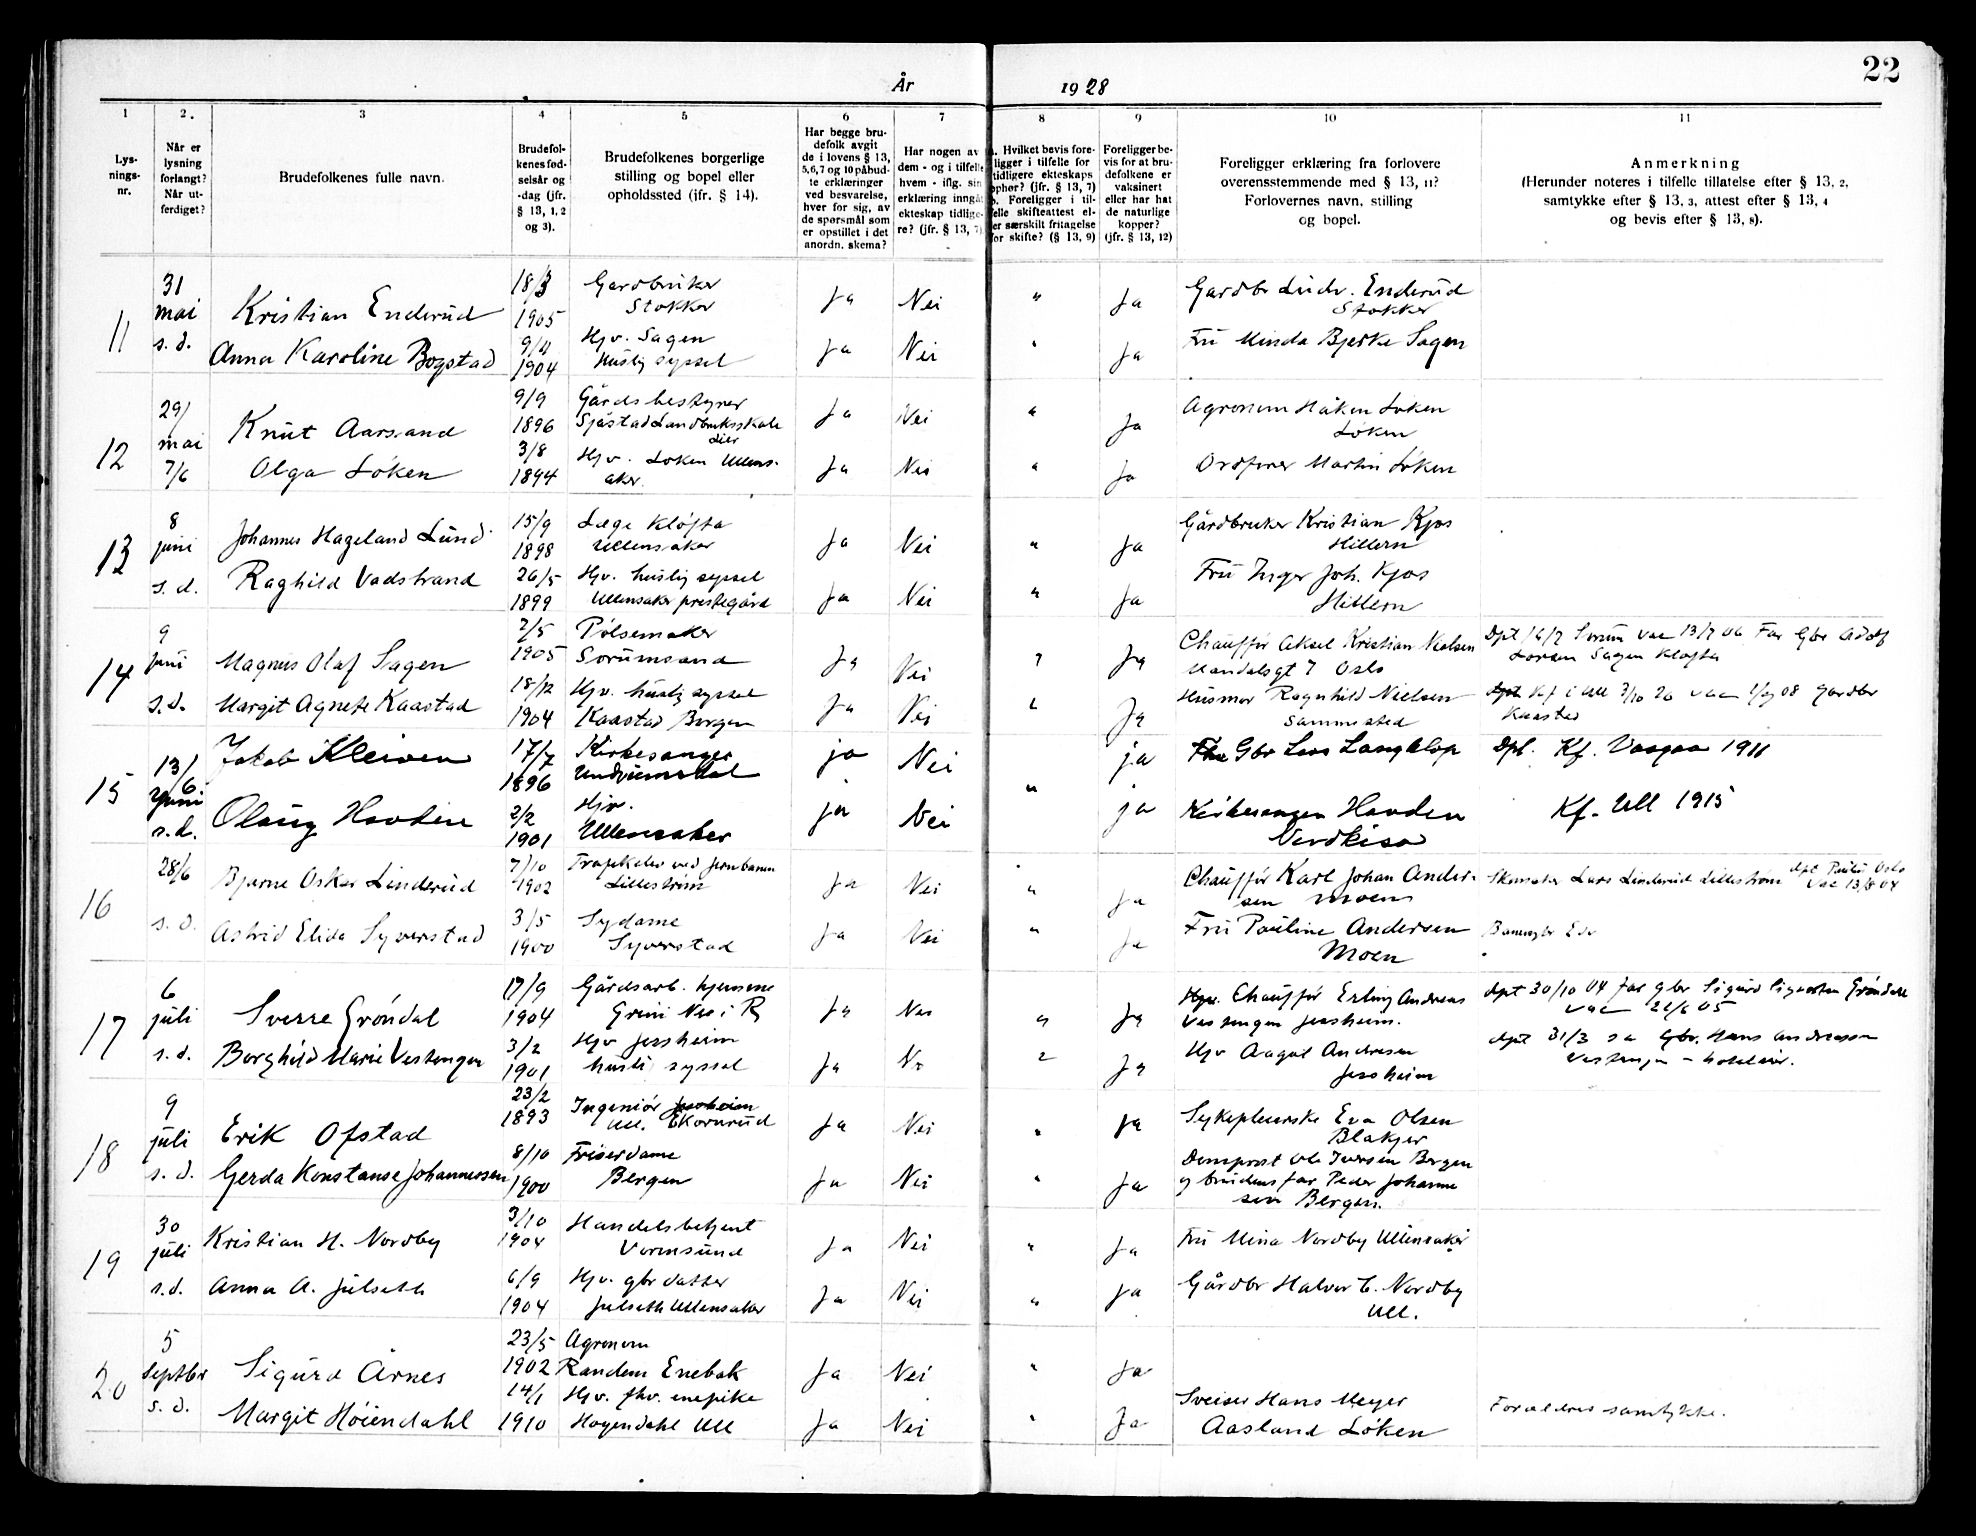 22
År 1928
1 2. 3 4 5 6 7 8 9 10 11
Lys-
nings-
nr.
Når er
lysning
forlangt?
Når ut-
ferdiget?
Brudefolkenes fulle navn.
Brudefol-
kenes fød-
selsår og
-dag (jfr.
§ 13, 1, 2
og 3).
Brudefolkenes borgerlige
stilling og bopel eller
opholdssted (jfr. § 14).
Har begge bru-
defolk avgit
de i lovens § 13,
5,6,7 og 10 påbud-
te erklæringer
ved besvarelse,
hver for sig, av
de spørsmål som
er opstillet i det
anordn. skema?
Har nogen av
dem - og i tilfelle
hvem - iflg. sin
erklæring inngåt
ekteskap tidlige-
re? (jfr. § 13, 7)
a. Hvilket bevis fore-
ligger i tilfelle for
tidligere ekteskaps
ophør? (jfr. § 13, 7)
b. Foreligger i til-
felle skifteattest el-
ler særskilt fritagelse
for skifte? (§ 13, 9)
Foreligger be-
vis for at bru-
defolkene er
vaksinert
eller har hat
de naturlige
kopper?
(jfr. § 13, 12)
Foreligger erklæring fra forlovere
overensstemmende med § 13, 11?
Forlovernes navn, stilling
og bopel.
Anmerkning
(Herunder noteres i tilfelle tillatelse efter § 13, 2,
samtykke efter § 13, 3, attest efter § 13, 4
og bevis efter § 13, 8).
11
31
mai
s. d.
Kristian Enderud
18/3
1905
Gardbruker
Stokker
Ja Nei " Ja
Gardbr Ludv. Enderud
Stokker
Anna Karoline Bogstad
9/4
1904
Hjv. Sagen
Huslig syssel
Ja Nei " Ja
Fru Minda Bjerke Sagen
12
29/
mai
7/6
Knut Aarsand
9/9
1896
Gårdsbestyrer
Sjåstad Landbruksskole
Lier
Ja Nei " Ja
Agronom Håken Løken
Løken
Olga Løken
3/8
1894
Hjv. Løken Ullens-
aker.
Ja Nei " Ja
Ordfører Martin Løken
13
8
juni
s. d.
Johannes Hageland Lund
15/9
1898
Læge Kløfta
Ullensaker
Ja Nei " Ja
Gårdbruker Kristian Kjos
Hillern
Raghild Vadstrand
26/5
1899
Hjv. huslig syssel
Ullensaker prestegård
Ja Nei " Ja
Fru Inger Joh. Kjos
Hillern
14
9
juni
s. d.
Magnus Olaf Sagen
2/5
1905
Pølsemaker
Sørumsand
Ja Nei " Ja
Chauffør Aksel Kristian Nielsen
Mandalsgt 7 Oslo
Dpt 16/7 Sørum vac 13/7 06 Far Gbr Adolf
Lorson Sagen Kløfta
Margit Agnete Kaastad
18/12
1904
Hjv. huslig syssel
Kaastad Borgen
Ja Nei " Ja
Husmor Ragnhild Nielsen
sammested
Kf i Ull 3/10 20 vac 1/9 08 Gardbr
Kaastad
15
13/6
juni
s. d.
Jakob Kleiven
17/7
1896
Kirkesanger
ja Nei " ja
Gbr Lars Langklop
Dpt. Kf. Vaagaa 1911
Olaug Hovden
2/2
1901
Hjv.
Ullensaker
ja Nei ja
Kirkesanger Hovden
Nordkisa
Kf. Ull 1915
16
28/6
s. d.
Bjarne Oskar Linderud
7/10
1902
Trafikelev ved jernbanen
Lillestrøm
Ja Nei " Ja
Chauffør Karl Johan Ander-
sen Moen
Skomaker Lars Linderud Lillestrøm dpt Paulus Oslo
Vac 13/8 04
Astrid Elida Syverstad
3/5
1900
Sydame
Syverstad
Ja Nei " Ja
Fru Pauline Andersen
Moen
17
6
juli
s. d.
Sverre Grøndal
17/9
1904
Gårdsarb. hjemme
Grini Nes i R
Ja Nei " Ja
Chauffør Erling Andreas
Vestengen Jessheim.
dpt 30/10 04 far gbr Sigurd Sigurdsen Grøndal
vac 22/6 05
Borghild Marie Vestengen
3/2
1901
Hjv Jessheim
husli syssel
Ja Nei " Ja
Hjv Aagot Andresen
Jessheim
dpt 31/3 sa Gbr. Hans Andreassen
Vestengen
18
9
juli
s. d.
Erik Ofstad
23/2
1893
Ingeniør Jessheim
Ull. Ekornrud
Ja Nei " Ja
Sykepleierske Eva Olsen
Blakjer
Gerda Konstanse Johannessen
8/10
1900
Friserdame
Bergen
Ja Nei " Ja
Domprost Ole Iversen Bergen
og brudens far Peder Johanne
sen Bergen.
19
30
juli
s. d.
Kristian H. Nordby
3/10
1904
Handelsbetjent
Vormsund
Ja Nei " Ja
Fru Mina Nordby Ullensaker
Anna A. Julseth
6/9
1904
Hjv. gbr datter
Julseth Ullensaker
Ja Nei " Ja
Gårdbr Halvor E. Nordby
Ull.
20
5
Septbr
s. d.
Sigurd Årnes
23/5
1902
Agronom
Randem Enebak
Ja Nei " Ja
Margit Høiendahl
14/1
1910
Hjv. fhv. enepike
Høgendahl Ull
Ja Nei " Ja
Sveiser Hans Meyer
Aasland Løken
Forældres samtykke.